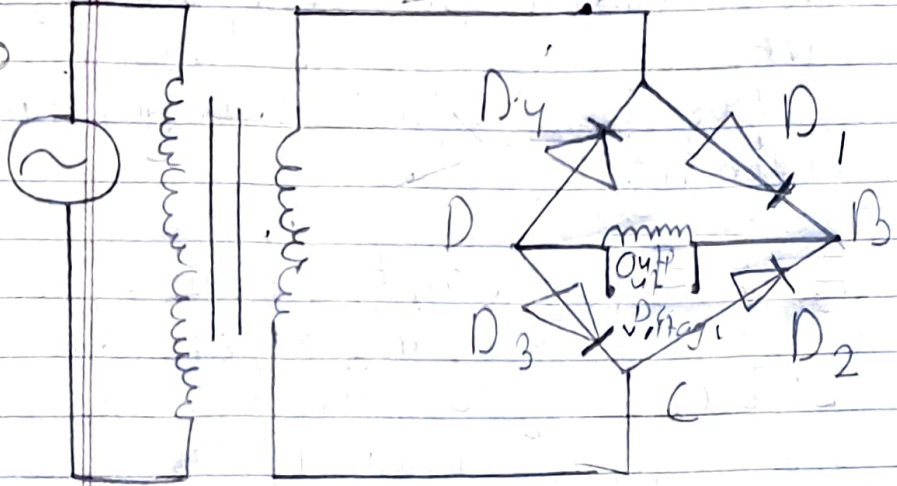 D4
D1
D
B
Output
DC
Voltage
D3
D2
C